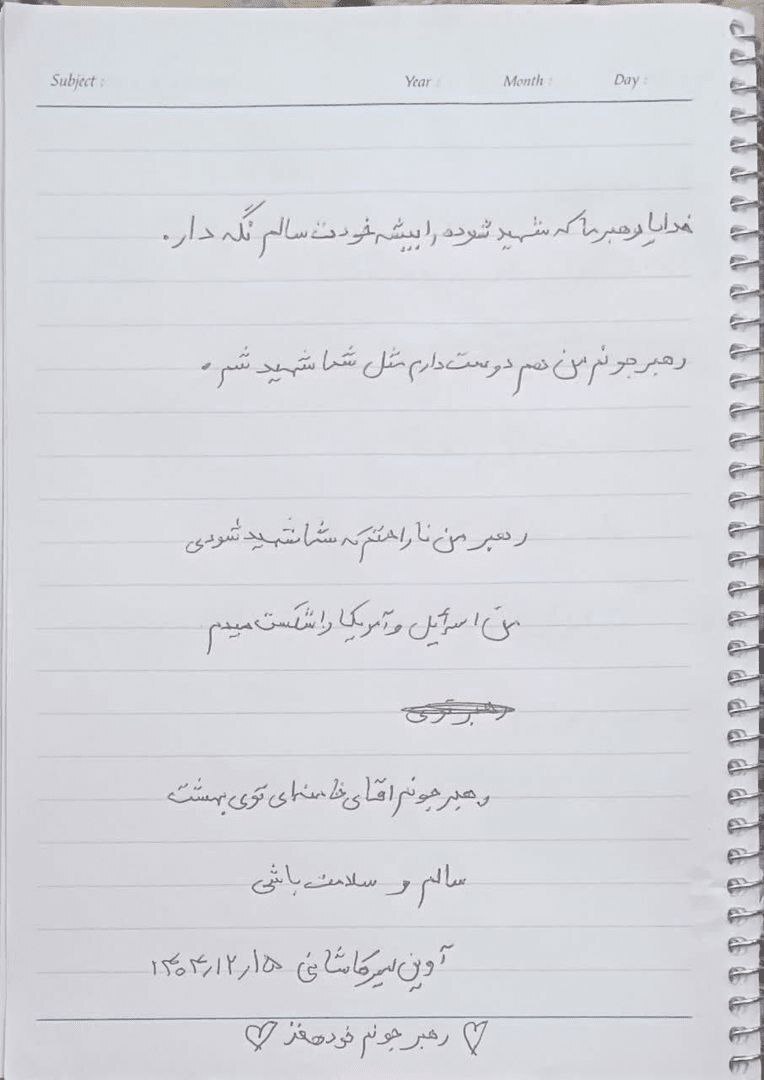 Subject : Year : Month : Day :
خدایا رهبر ما که شهید شوده را بیشه خودت سالم نگه دار .
رهبر جونم من هم دوست دارم مثل شما شهید شم .
رهبر من ناراحتم که شما شهید شودی
من اسرائیل و آمریکا را شکست میدم
رهبر توی
رهبر جونم اقای خامنه‌ای توی بهشت
سالم و سلامت باشی
آوین میرکاشانی ۱۴۰۴/۱۲/۱۵
♡ رهبر جونم خودهفز ♡